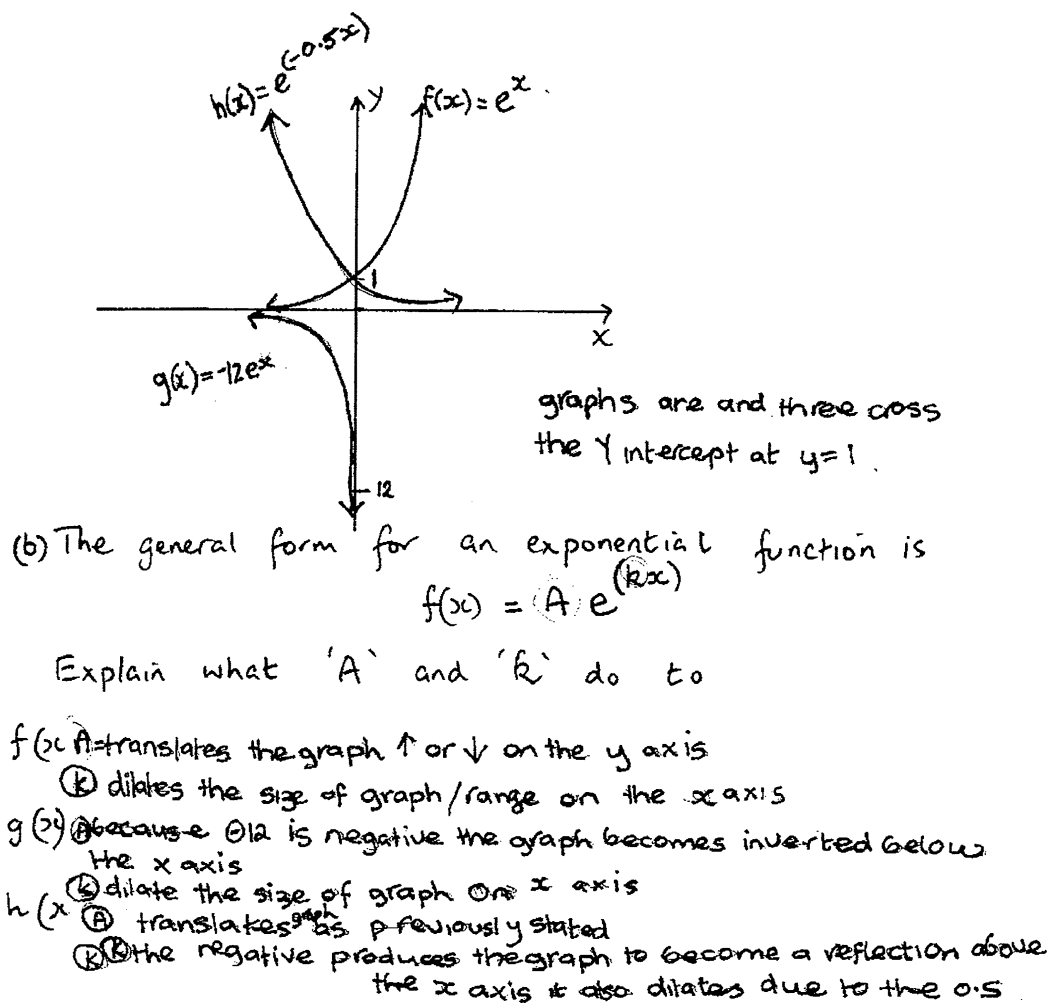 h(x)=e^(-0.5x)
y
f(x)=e^x
1
x
g(x)=-12e^x
graphs are and three cross
the Y intercept at y=1.
-12
(b) The general form for an exponential function is
f(x) = A e^(kx)
Explain what 'A' and 'k' do to
f(x A=translates the graph ↑ or ↓ on the y axis
(k) dilates the size of graph/range on the x axis
g(x) (A) because ⊖12 is negative the graph becomes inverted below
the x axis
(k) dilate the size of graph on x axis
h(x (A) translates graph as previously stated
(k) (k) the negative produces the graph to become a reflection above
the x axis it also dilates due to the 0.5